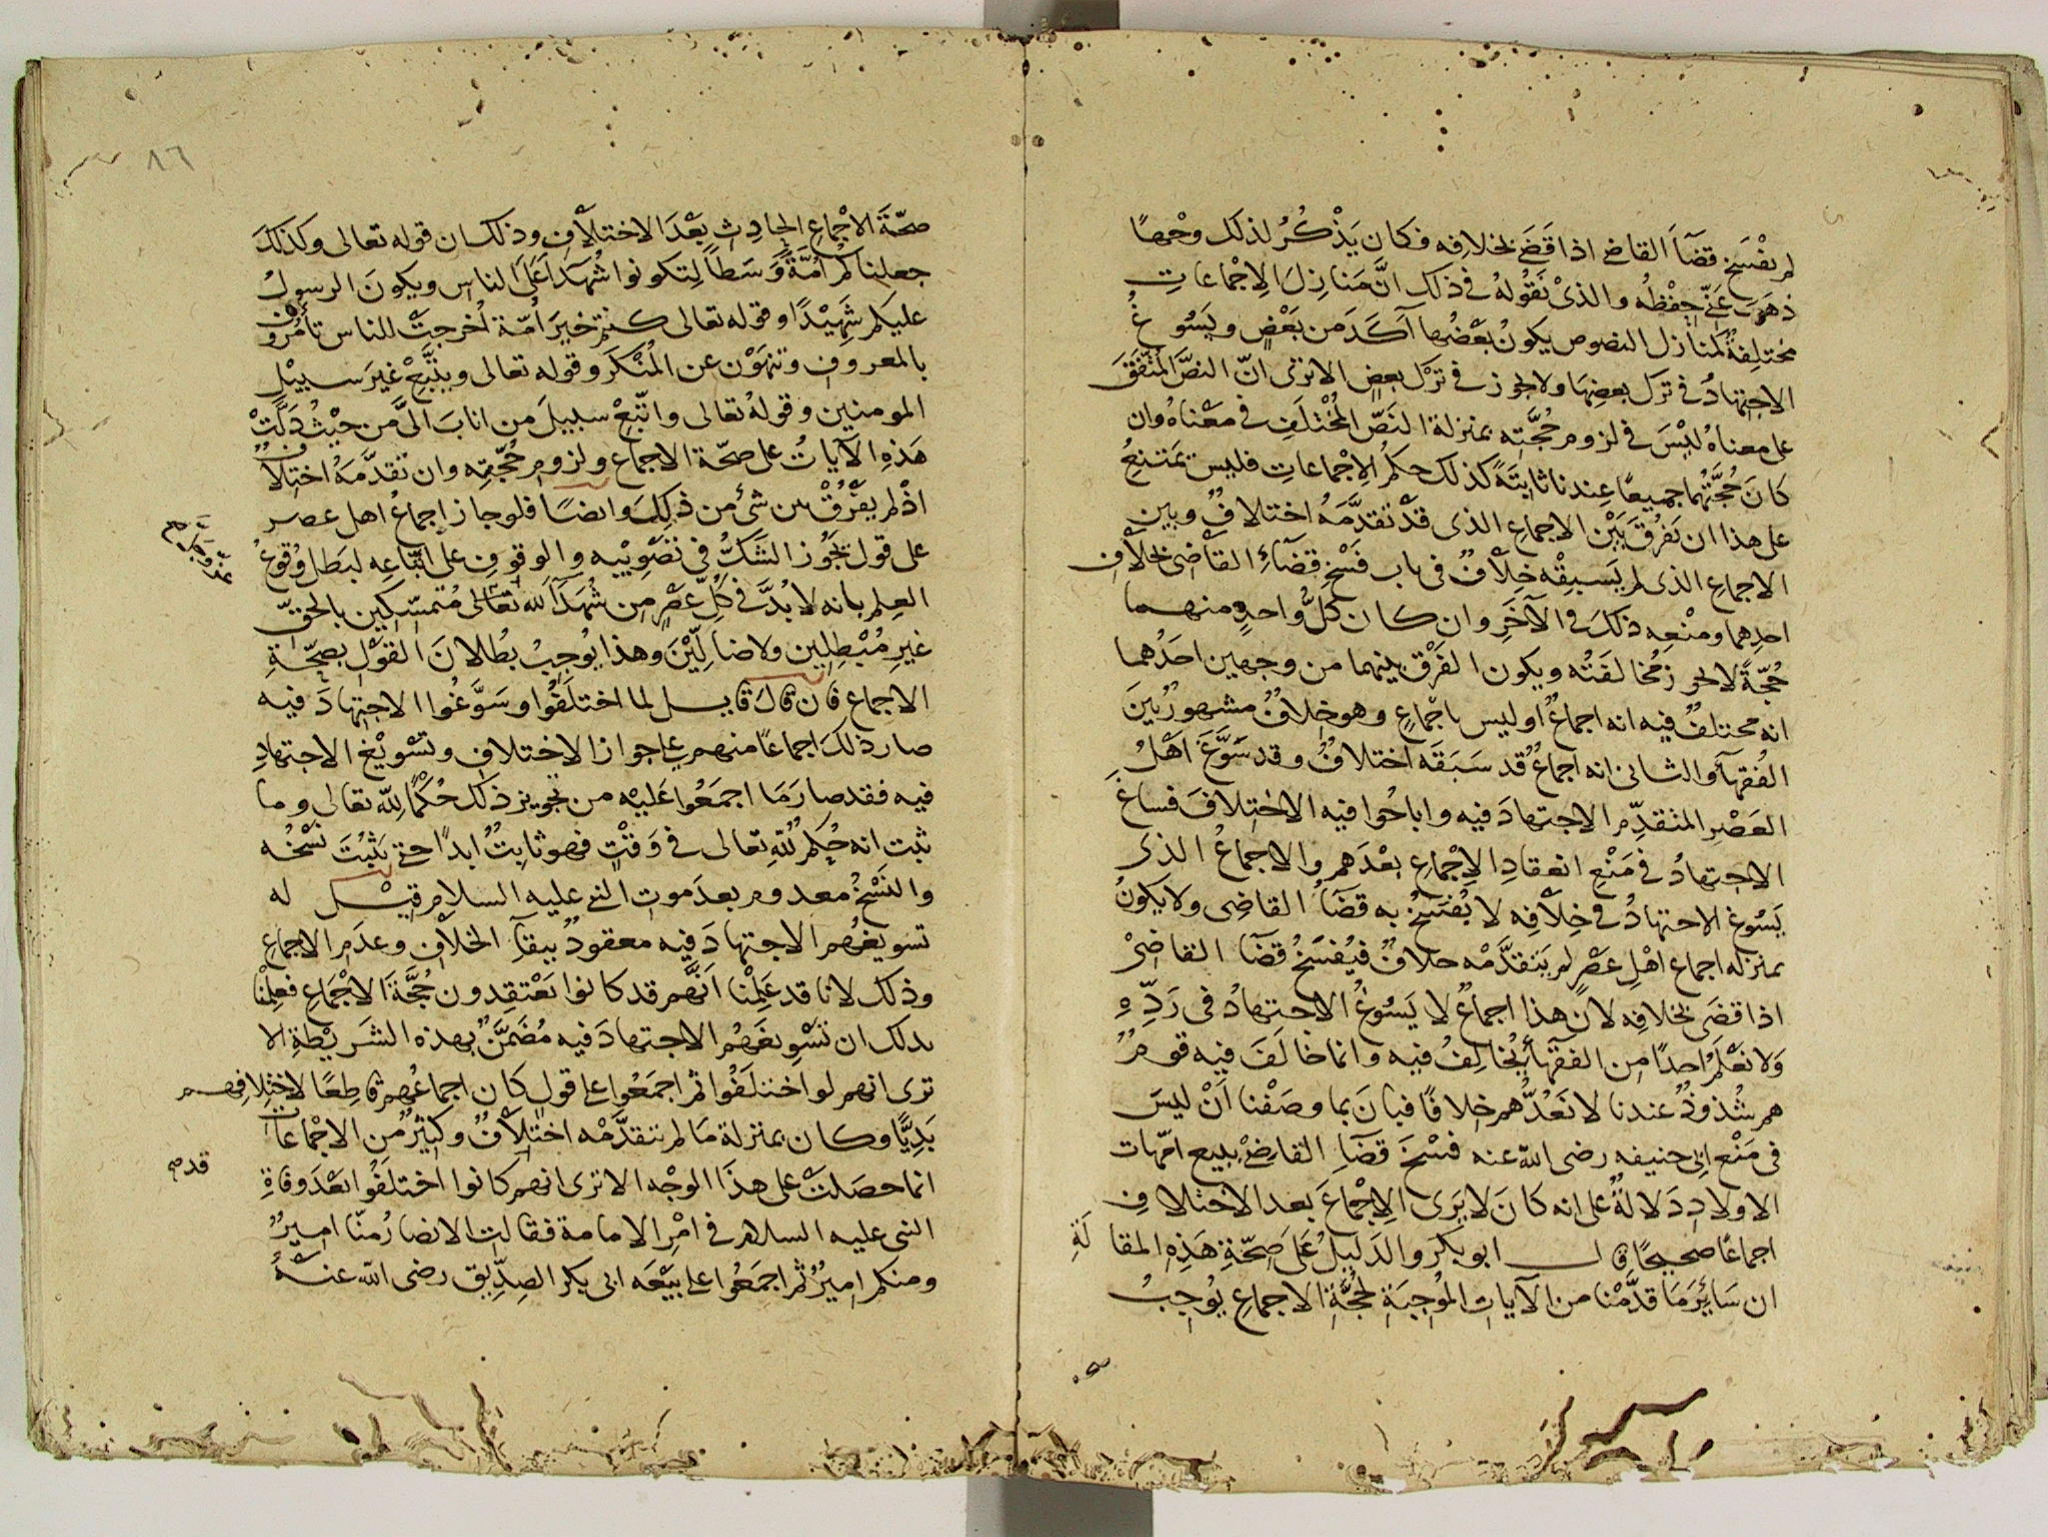 لم يفْسَخ قضآءَ القاضي اذا قَضَى بخلافِه فكان يَذْكُرُ لذلك وجْهًا
ذهَبَ عَنّي حِفْظُه والذيْ نَقُولُهُ في ذلك انَّ مَنازِلَ الاِجْماعاتِ
مختلِفةٌ لمنازل النصوص يكونُ بَعْضُها آكَدَ من بَعْضٍ ويَسُوغُ
الاجتهادُ في تركِ بعضِهَا ولا يجوز في تَرْك بعضٍ الا ترى انّ النصَّ المتّفَقَ
على معناهُ ليْسَ في لزوم حُجَّتِه بمنزلة النَصّ المُخْتلَفِ في معْناهُ وان
كانَ حُجَّتُهما جميعًا عِندنا ثابتَةً كذلك حكم الاِجْماعاتِ فليس تمتنِعُ
على هذا ان نَفرُقَ بَيْن الاجماع الذى قدْ تقدَّمَهُ اختلافٌ وبين
الاجماع الذى لم يَسبِقْه خِلاْفٌ فى باب فَسْخِ قضآءِ القاضى بخلاْفِ
احدِهما ومنْعِه ذلكَ في الآخَرِ وان كان كلُّ واحدٍ منهما
حُجّةً لا يجوز مُخالفَتُه ويكون الفَرْق بينهما من وجهين احَدُهما
انه مختلفٌ فيه انه اجماعٌ اوليس باجْماعٍ وهو خِلافٌ مشهورٌ بَينَ
الفُقهآءِ والثانى انه اجماعٌ قد سَبَقَه اختلافٌ وقد سَوَّغَ اَهْلُ
العَصْرِ المتقدِّم الاجتهادَ فيه واباحُوا فيه الاختِلافَ فساغَ
الاجتهادُ في مَنْعِ انعقادِ الاِجْماعِ بعْدَهم والاجماعُ الذى
يَسُوغ الاجتهادُ في خِلاْفِه لا يُفسَخُ به قضَآءُ القاضِى ولا يكونُ
بمنزله اجماع اهْلِ عَصْرٍ لم يَتقدَّمْه خلافٌ فيُفسَخُ قضَآءُ القاضيْ
اذا قضَى بخلافِه لان هذا اجماعٌ لا يَسُوغُ الاجتهادُ فى رَدِّهِ
وَلا نعْلَمُ احدًا من الفقهآءِ يُخالِفُ فيه وانما خالَفَ فيه قومٌ
هم شُذوذٌ عندنا لا نَعُدُّهم خِلافًا فبانَ بما وصَفْنا اَنْ ليسَ
فى مَنْع ابى حنيفه رضى الله عنه فسْخَ قضَآءِ القاضيْ ببيع امّهات
الاولادِ دَلالةٌ على انه كانَ لا يَرَى الاِجْماعَ بعد الاختلافِ
اجماعًا صحيحًا قال ابو بكر والدَليْلُ عَلَى صِحّةِ هَذِهِ المقالَةِ
ان سَائِرَ مَا قدَّمْنا من الآياتِ المُوجِبَةِ لحُجَّةِ الاجماعِ يُوجِبُ
٨٦
صحّةَ الاجْماعِ الحادِثِ بعْدَ الاختلاْفِ وذلك ان قوله تعالى وكذلكَ
جعلناكم اُمّةً وَسَطاً لِتكونوا شُهَدآءَ عَلَى الناس ويكونَ الرسولُ
عليكم شَهِيْدًا وقوله تعالى كنتم خيرَ اُمّة اُخرجتْ للناس تأمُرُون
بالمعروف وتنهَوْن عن المُنْكَر وقوله تعالى ويتَّبعْ غيرَ سبيْلِ
المومنين وقولهُ تعالى واتّبِعْ سبيلَ من انابَ الىَّ من حيْثُ دَلَّتْ
هَذهِ الآياتُ على صحّة الاجماع ولزوم حُجّيّتِه وان تقدَّمَهُ اختلافٌ
اذْ لم يفْرُقْ بين شئٍ من ذلكَ وايضًا فلو جاز اجماعُ اهل عصر
على قول يجُوز الشَكُّ فى تصْوِيْبِه والوقوفِ على اتّباعِه لبَطل وُقوعُ
العِلم بانه لا بُدَّ في كلِّ عصْرٍ من شُهَدآءَ لله تعالى مُتمسّكين بالحقّ
غيرِ مُبْطِلين ولا ضالِّيْنَ وهذا يُوجِبُ بُطلانَ القوْلِ بصِحّةِ
الاجماع فان قالَ قايل لما اختلَفُوا وسَوَّغُوا الاجتهادَ فيه
صار ذلكَ اجماعًا منهم على جواز الاختلافِ وتسْويْغ الاجتهادِ
فيه فقد صارَ مَا اجمَعُوا عَليْه من تجويز ذلك حُكْمًا لِلّه تعالى وما
ثبت انه حُكمٌ للهِ تعالى فى وَقتٍ فهو ثابِتٌ ابدًا حتى يَثبُتَ نسْخُه
والنَسْخُ معدوم بعدَ موت النبى عليه السلام قيْل له
تسويغُهم الاجتهادَ فيه معقودٌ ببقآءِ الخلافِ وعدَم الاجماعِ
وذلك لانا قد عَلِمْنا اَنَّهم قد كانوا يَعْتقِدون حُجَّةَ الاجْماعِ فعلِمْنا
بذلك ان تَسْوِيغَهُم الاجتهادَ فيه مُضَمَّنٌ بهذه الشَريْطةِ الا
ترى انهم لو اختلَفُوا ثم اجمَعُوا على قولٍ كان اجماعُهم قاطِعًا لاختلافِهم
بَدِيًّا وكان بمنزلة مَا لم يتقدَّمْه اختلاْفٌ وكثيْرٌ من الاجْماعاتِ
انما حصَلتْ على هذَا الوجْه الا ترى انهم كانوا اختلَفُوا بعْدَ وفاةِ
النبى عليه السلام فى امْرِ الامامة فقالت الانصارُ منّا اميرٌ
ومنكم اميرٌ ثم اجمَعُوا على بيْعَه ابى بكر الصِدِّيق رضى الله عنهُ